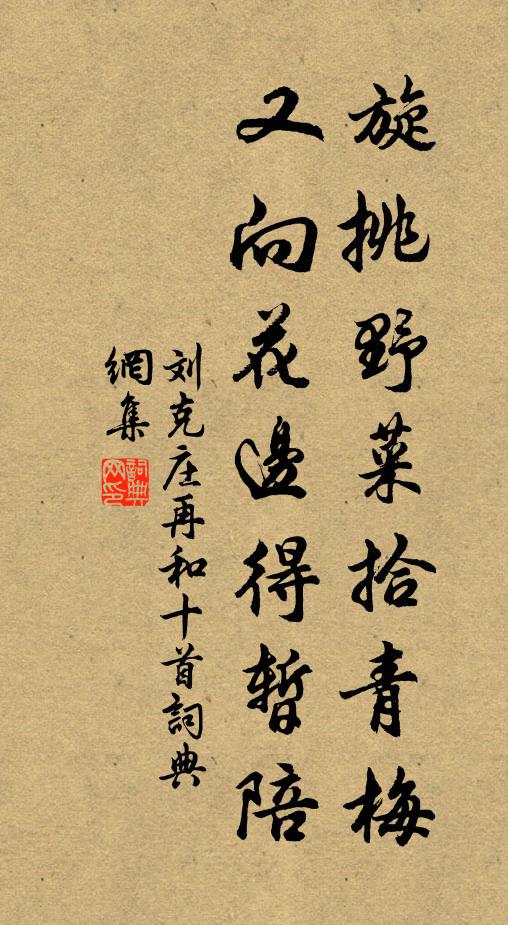 旋挑野菜拾青梅
又向花邊得暫陪
刘克庄再和十首詞典
網集
詞典网印